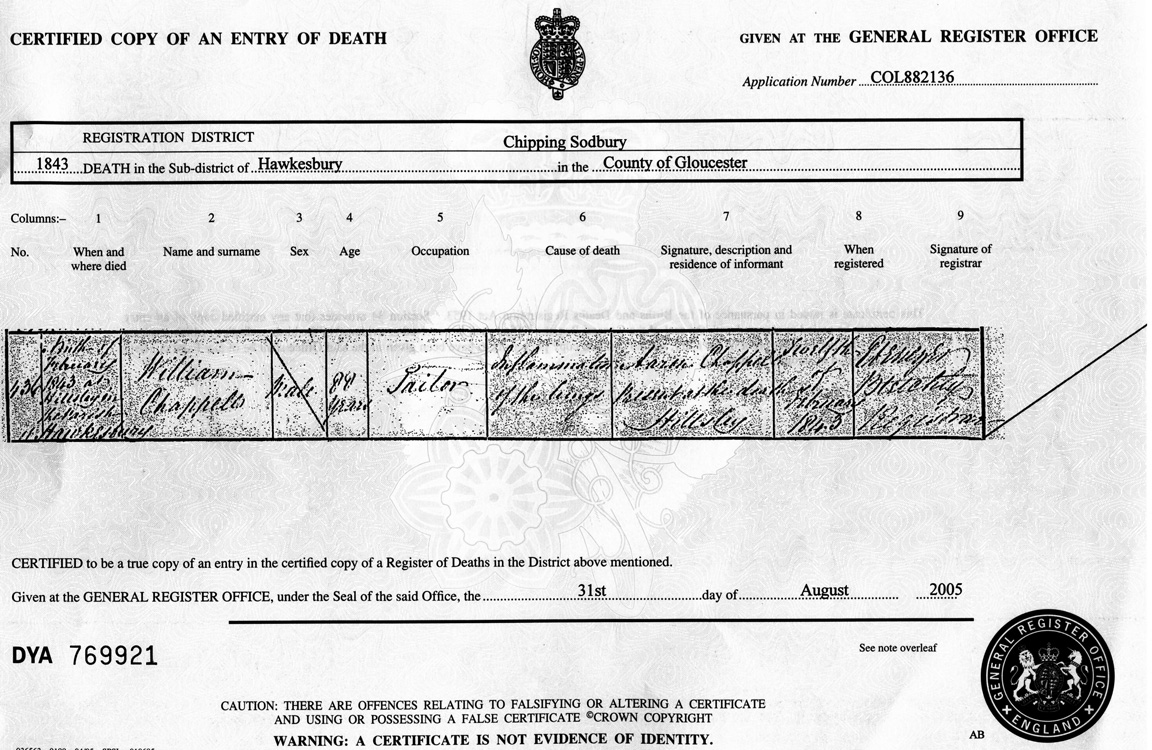 CERTIFIED COPY OF AN ENTRY OF DEATH
GIVEN AT THE GENERAL REGISTER OFFICE
Application Number COL882136
REGISTRATION DISTRICT Chipping Sodbury
1843 DEATH in the Sub-district of Hawkesbury in the County of Gloucester
Columns:– 1 2 3 4 5 6 7 8 9
No. When and where died Name and surname Sex Age Occupation Cause of death Signature, description and residence of informant When registered Signature of registrar
February 1843 at Hillsley in the parish Hawkesbury
William Chappell
Male
88 years
Tailor
Inflammation of the lungs
Chappel Present at the death Hillsley
Twelfth of February 1843
Registrar
CERTIFIED to be a true copy of an entry in the certified copy of a Register of Deaths in the District above mentioned.
Given at the GENERAL REGISTER OFFICE, under the Seal of the said Office, the 31st day of August 2005
DYA 769921
See note overleaf
GENERAL REGISTER OFFICE
ENGLAND
CAUTION: THERE ARE OFFENCES RELATING TO FALSIFYING OR ALTERING A CERTIFICATE
AND USING OR POSSESSING A FALSE CERTIFICATE ©CROWN COPYRIGHT
WARNING: A CERTIFICATE IS NOT EVIDENCE OF IDENTITY.
AB